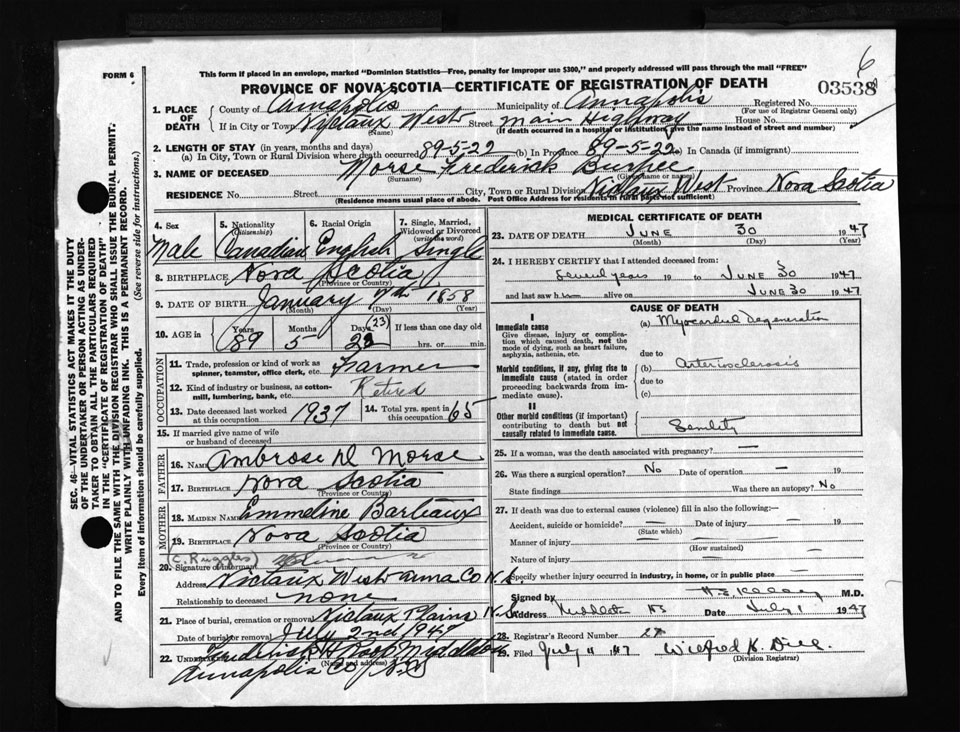 6
FORM 6
This form if placed in an envelope, marked "Dominion Statistics—Free, penalty for improper use $300," and properly addressed will pass through the mail "FREE"
PROVINCE OF NOVA SCOTIA—CERTIFICATE OF REGISTRATION OF DEATH
03538
1. PLACE OF DEATH
County of Annapolis Municipality of Annapolis Registered No.
(For use of Registrar General only)
If in City or Town Nictaux West Street Main Highway House No.
(Name) (If death occurred in a hospital or institution, give the name instead of street and number)
2. LENGTH OF STAY (in years, months and days)
(a) In City, Town or Rural Division where death occurred 89-5-22 (b) In Province 89-5-22 (c) In Canada (if immigrant)
3. NAME OF DECEASED Morse Frederick Burpee
(Surname) (Given name or names)
RESIDENCE No. Street City, Town or Rural Division Nictaux West Province Nova Scotia
(Residence means usual place of abode. Post Office Address for residents in rural parts not sufficient)
4. Sex 5. Nationality (Citizenship) 6. Racial Origin 7. Single, Married, Widowed or Divorced (write the word)
Male Canadian English Single
8. BIRTHPLACE Nova Scotia
(Province or Country)
9. DATE OF BIRTH January 7th 1858
(Month) (Day) (Year)
10. AGE in Years Months Days If less than one day old
89 5 (23) hrs. or min.
OCCUPATION
11. Trade, profession or kind of work as spinner, teamster, office clerk, etc. Farmer
12. Kind of industry or business, as cotton-mill, lumbering, bank, etc. Retired
13. Date deceased last worked at this occupation 1937 14. Total yrs. spent in this occupation 65
15. If married give name of wife or husband of deceased
FATHER
16. NAME Ambrose D Morse
17. BIRTHPLACE Nova Scotia
(Province or Country)
MOTHER
18. MAIDEN NAME Emmeline Barteaux
19. BIRTHPLACE Nova Scotia
(Province or Country)
(C. Ruggles)
20. Signature of informant
Address Nictaux West Anna Co N.S.
Relationship to deceased none
21. Place of burial, cremation or removal Nictaux Plains N.S
Date of burial or removal July 2nd 1947
22. UNDERTAKER Frederick H Roop Middleton
(Name and address)
Annapolis Co N.S.
MEDICAL CERTIFICATE OF DEATH
23. DATE OF DEATH June 30 1947
(Month) (Day) (Year)
24. I HEREBY CERTIFY that I attended deceased from:
Several years 19 to June 30 1947
and last saw him alive on June 30 1947
CAUSE OF DEATH
I
Immediate cause
Give disease, injury or complication which caused death, not the mode of dying, such as heart failure, asphyxia, asthenia, etc.
(a) Myocardial Degeneration
due to
Morbid conditions, if any, giving rise to immediate cause (stated in order proceeding backwards from immediate cause).
(b) Arteriosclerosis
due to
(c)
II
Other morbid conditions (if important) contributing to death but not causally related to immediate cause.
Senility
25. If a woman, was the death associated with pregnancy? —
26. Was there a surgical operation? No Date of operation — 19
State findings Was there an autopsy? No
27. If death was due to external causes (violence) fill in also the following:—
Accident, suicide or homicide? — Date of injury — 19
(State which)
Manner of injury —
(How sustained)
Nature of injury —
Specify whether injury occurred in industry, in home, or in public place —
Signed by M.D.
Address Middleton NS Date July 1 1947
28. Registrar's Record Number 27
29. Filed July 11 1947 Wilfred K. Dill.
(Division Registrar)
SEC. 46 VITAL STATISTICS ACT MAKES IT THE DUTY
OF THE UNDERTAKER OR PERSON ACTING AS UNDER-
TAKER TO OBTAIN ALL THE PARTICULARS REQUIRED
IN THE "CERTIFICATE OF REGISTRATION OF DEATH"
AND TO FILE THE SAME WITH THE DIVISION REGISTRAR WHO SHALL ISSUE THE BURIAL PERMIT.
WRITE PLAINLY WITH UNFADING INK. THIS IS A PERMANENT RECORD.
Every item of information should be carefully supplied. (See reverse side for instructions.)